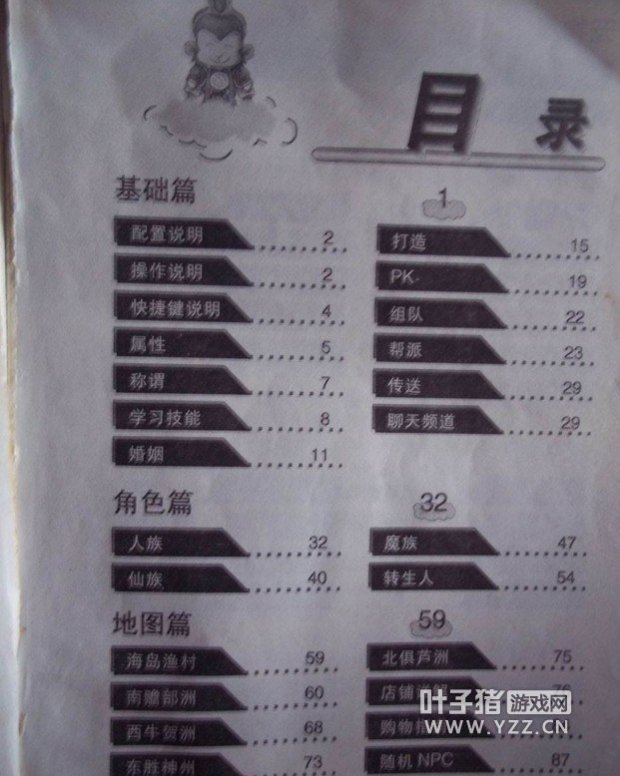 目 录
基础篇 1
配置说明 2
操作说明 2
快捷键说明 4
属性 5
称谓 7
学习技能 8
婚姻 11
打造 15
PK 19
组队 22
帮派 23
传送 29
聊天频道 29
角色篇 32
人族 32
仙族 40
魔族 47
转生人 54
地图篇 59
海岛渔村 59
南赡部洲 60
西牛贺洲 68
东胜神州 73
北俱芦洲 75
店铺
购物
随机 NPC 87
叶子猪 游戏网
WWW.YZZ.CN